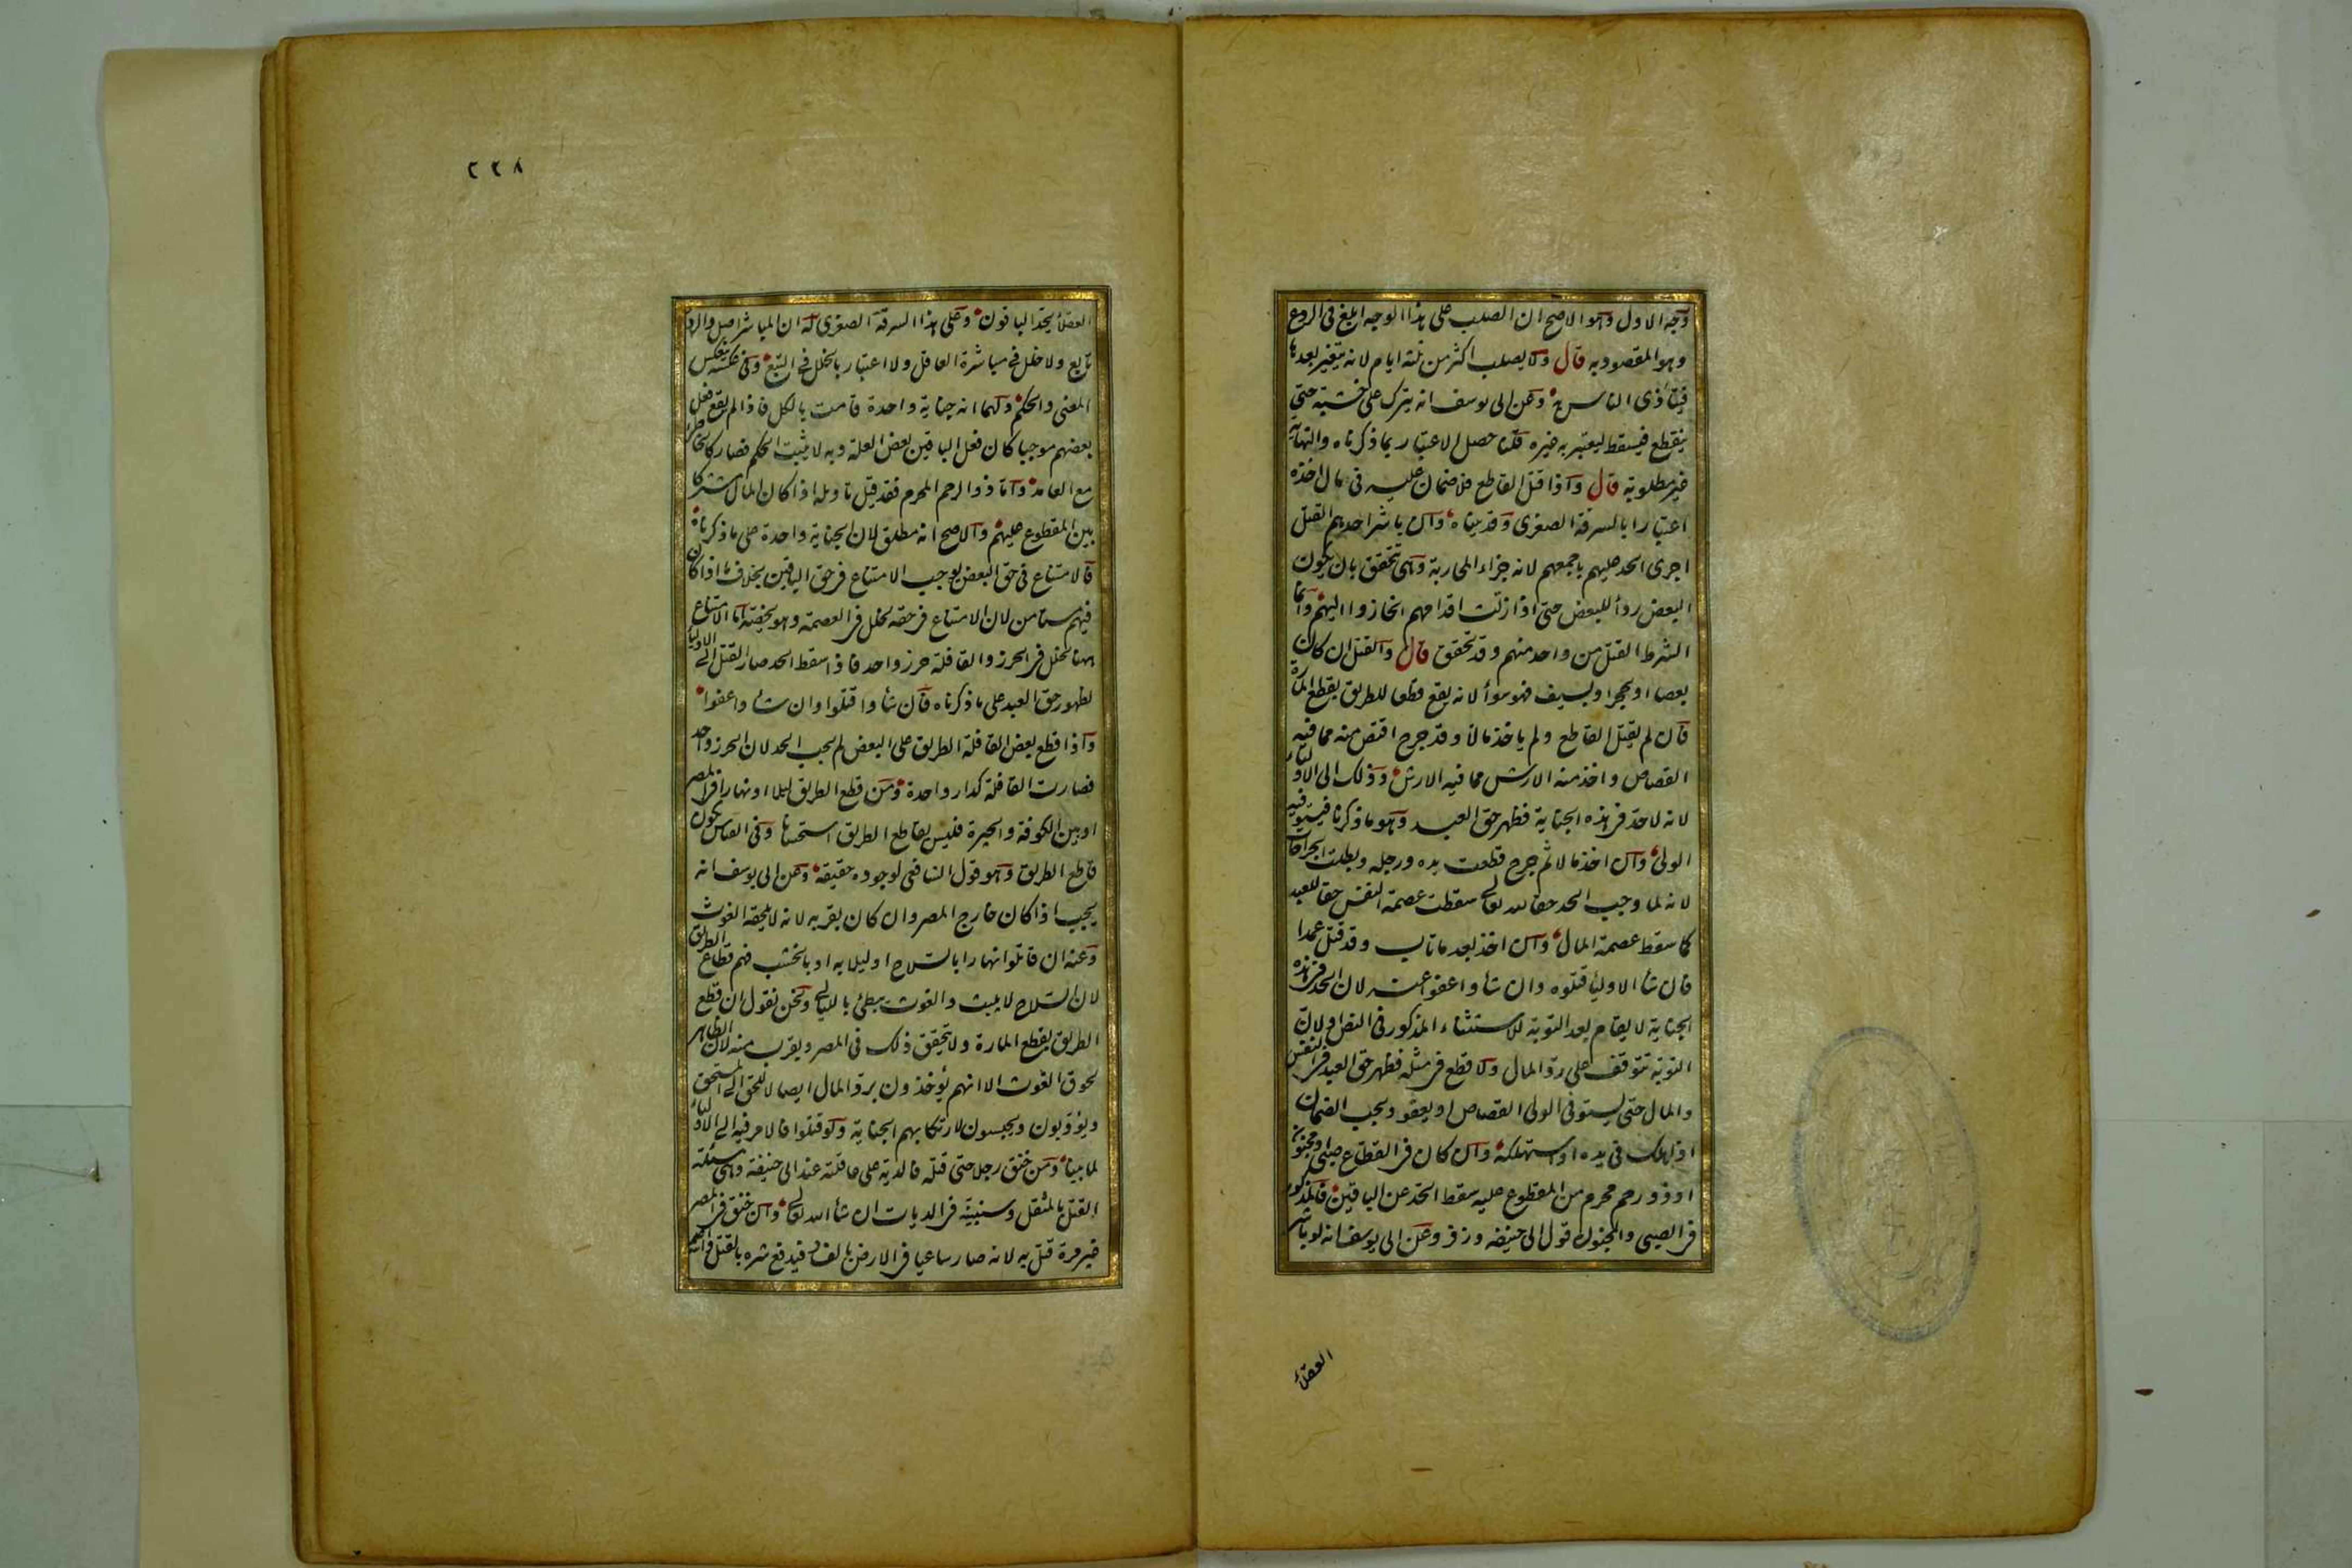 وجه الاول وهو الاصح ان الصلب على هذا الوجه ابلغ فى الردع
وهو المقصود به قال ولا يصلب اكثر من ثلثة ايام لانه يتغير بعدها
فيتأذى الناس به وعن ابى يوسف انه يترك على خشبته حتى
ينقطع فيسقط ليعتبر به غيره قلنا حصل الاعتبار بما ذكرناه والنهاية
غير مطلوبة قال واذا قتل القاطع فلا ضمان عليه فى مال اخذه
اعتبارا بالسرقة الصغرى وقد بيناه وان باشر احدهم القتل
اجرى الحد عليهم باجمعهم لانه جزاء المحاربة وهى تتحقق بان يكون
البعض ردأ للبعض حتى اذا زلت اقدامهم انحازوا اليهم وانما
الشرط القتل من واحد منهم وقد تحقق قال والقتل ان كان
بعصا او بحجر او بسيف فهو سواء لانه يقع قطعا للطريق بقطع المارة
فان لم يقتل القاطع ولم ياخذ مالا وقد جرح اقتص منه مما فيه
القصاص واخذ منه الارش مما فيه الارش وذلك الى الاولياء
لانه لا حد فى هذه الجناية فظهر حق العبد وهو ما ذكرنا فيستوفيه
الولى وان اخذ مالا ثم جرح قطعت يده ورجله وبطلت الجراحات
لانه لما وجب الحد حقا لله تعالى سقطت عصمة النفس حقا للعبد
كما سقط عصمة المال وان اخذ بعد ما تاب وقد قتل عمدا
فان شاء الاولياء قتلوه وان شاؤا عفوا عنه لان الحد فى هذه
الجناية لا يقام بعد التوبة للاستثناء المذكور فى النص ولان
التوبة تتوقف على رد المال ولا قطع فى مثله فظهر حق العبد فى النفس
والمال حتى يستوفى الولى القصاص او يعفو ويجب الضمان
اذا هلك فى يده او استهلكه وان كان فى القطاع صبى او مجنون
او ذو رحم محرم من المقطوع عليه سقط الحد عن الباقين فالمذكور
فى الصبى والمجنون قول ابى حنيفة وزفر وعن ابى يوسف انه لو باشر
العقلاء
٢٢٨
العقلاء يحد الباقون وعلى هذا السرقة الصغرى له ان المباشر اصل والردء
تابع ولا خلل فى مباشرة العاقل ولا اعتبار بالخلل فى التبع وفى عكسه ينعكس
المعنى والحكم ولهما انه جناية واحدة قامت بالكل فاذا لم يقع فعل
بعضهم موجبا كان فعل الباقين بعض العلة وبه لا يثبت الحكم فصار كالخاطئ
مع العامد واما ذو الرحم المحرم فقد قيل تاويله اذا كان المال مشتركا
بين المقطوع عليهم والاصح انه مطلق لان الجناية واحدة على ما ذكرناه
فالامتناع فى حق البعض يوجب الامتناع فى حق الباقين بخلاف ما اذا كان
فيهم مستامن لان الامتناع فى حقه لخلل فى العصمة وهو يخصه اما الامتناع
ههنا لخلل فى الحرز والقافلة حرز واحد فاذا سقط الحد صار القتل الى الاولياء
لظهور حق العبد على ما ذكرناه فان شاؤا قتلوا وان شاؤا عفوا
واذا قطع بعض القافلة الطريق على البعض لم يجب الحد لان الحرز واحد
فصارت القافلة كدار واحدة ومن قطع الطريق ليلا او نهارا فى المصر
او بين الكوفة والحيرة فليس بقاطع الطريق استحسانا وفى القياس يكون
قاطع الطريق وهو قول الشافعى لوجوده حقيقة وعن ابى يوسف انه
يجب اذا كان خارج المصر وان كان بقربه لانه لا يلحقه الغوث
وعنه ان قاتلوا نهارا بالسلاح او ليلا به او بالخشب فهم قطاع الطريق
لان السلاح لا يلبث والغوث يبطئ بالليالى ونحن نقول ان قطع
الطريق بقطع المارة ولا يتحقق ذلك فى المصر ويقرب منه لان الظاهر
لحوق الغوث الا انهم يؤخذون برد المال ايصالا للحق الى المستحق
ويؤدبون ويحبسون لارتكابهم الجناية ولو قتلوا فالامر فيه الى الاولياء
لما بينا ومن خنق رجلا حتى قتله فالدية على عاقلته عند ابى حنيفة وهى مسئلة
القتل بالمثقل وسنبينه فى الديات ان شاء الله تعالى وان خنق فى المصر
غير مرة قتل به لانه صار ساعيا فى الارض بالفساد فيدفع شره بالقتل